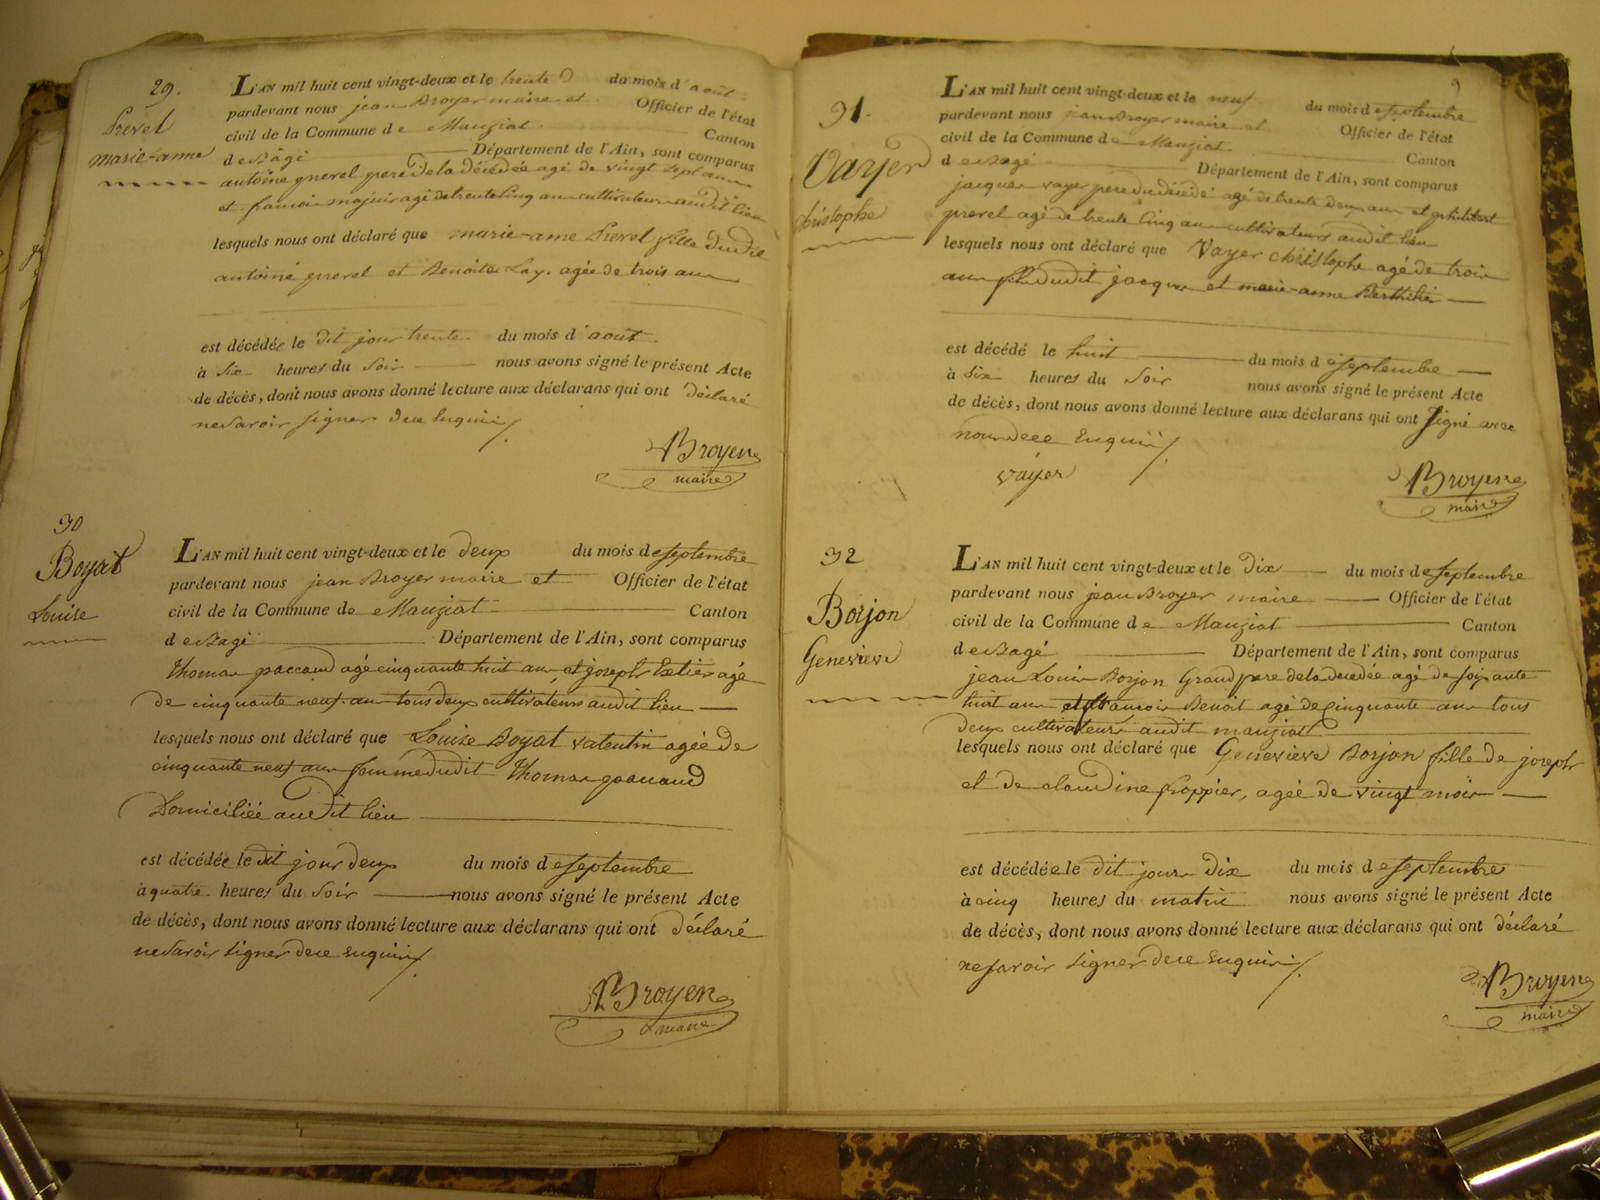 29.
Prevel
marie-anne
L'AN mil huit cent vingt-deux et le trente du mois d'août
pardevant nous jean Broyer maire et Officier de l'état
civil de la Commune de Manziat Canton
de Bâgé Département de l'Ain, sont comparus
antoine prevel pere de la décédée agé de vingt sept ans
et françois majeur agé de trente cinq ans cultivateurs audit lieu
lesquels nous ont déclaré que marie-anne Prevel fille dudit
antoine prevel et Benoite Lay. agée de trois ans
est décédée le dit jour trente du mois d'août
à six heures du soir nous avons signé le présent Acte
de décès, dont nous avons donné lecture aux déclarans qui ont déclaré
ne savoir signer de ce enquis
Broyer
maire
30
Boyat
Louise
L'AN mil huit cent vingt-deux et le deux du mois de septembre
pardevant nous jean Broyer maire et Officier de l'état
civil de la Commune de Manziat Canton
de Bagé Département de l'Ain, sont comparus
Thomas paccaud agé cinquante huit ans et joseph agé
de cinquante neuf ans tous deux cultivateurs audit lieu
lesquels nous ont déclaré que Louise Boyat valentin agée de
cinquante neuf ans femme dudit Thomas paccaud
Domiciliée audit lieu
est décédée le dit jour deux du mois de septembre
à quatre heures du soir nous avons signé le présent Acte
de décès, dont nous avons donné lecture aux déclarans qui ont déclaré
ne savoir signer de ce enquis
Broyer
maire
9
31.
Vayer
christophe
L'AN mil huit cent vingt-deux et le neuf du mois de septembre
pardevant nous jean Broyer maire et Officier de l'état
civil de la Commune de Manziat Canton
de Bagé Département de l'Ain, sont comparus
jacques vayer pere du décédé agé de trente deux ans et philibert
prevel agé de trente cinq ans cultivateurs audit lieu
lesquels nous ont déclaré que Vayer christophe agé de trois
ans fils dudit jacques et marie-anne Berthilier
est décédé le huit du mois de septembre
à six heures du soir nous avons signé le présent Acte
de décès, dont nous avons donné lecture aux déclarans qui ont signé avec
nous de ce enquis
vayer
Broyer
maire
32
Borjon
Genevieve
L'AN mil huit cent vingt-deux et le dix du mois de septembre
pardevant nous jean Broyer maire Officier de l'état
civil de la Commune de Manziat Canton
de Bagé Département de l'Ain, sont comparus
jean Louis Borjon Grand pere de la décédée agé de soixante
huit ans et françois Benoit agé de cinquante ans tous
deux cultivateurs audit manziat
lesquels nous ont déclaré que Genevieve Borjon fille de joseph
et de claudine froppier, agée de vingt mois
est décédée le dit jour dix du mois de septembre
à cinq heures du matin nous avons signé le présent Acte
de décès, dont nous avons donné lecture aux déclarans qui ont déclaré
ne savoir signer de ce enquis
Broyer
maire